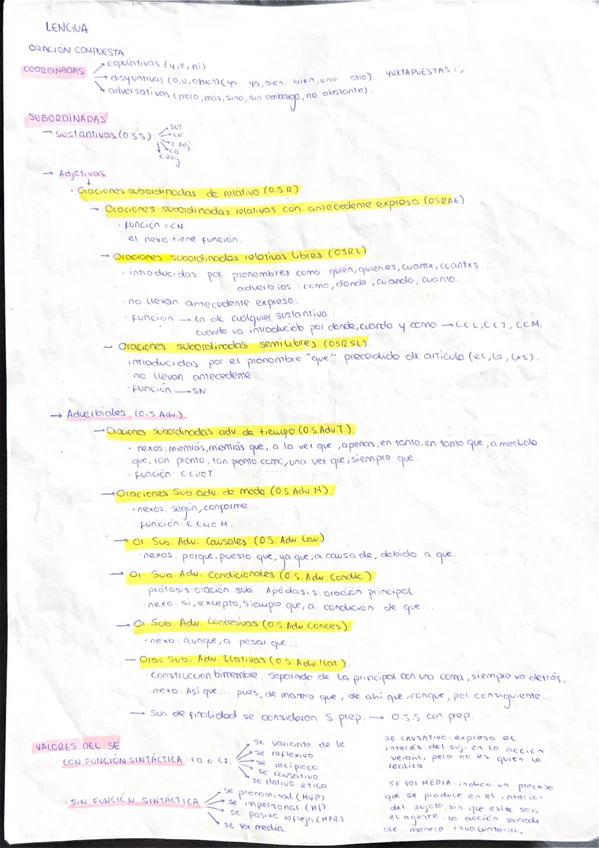 LENGUA
ORACIÓN COMPUESTA
COORDINADAS
copulativas (y, e, ni)
disyuntivas (o, u, o bien) (ya ya, bien bien, uno otro) YUXTAPUESTAS : ; ,
adversativas (pero, más, sino, sin embargo, no obstante).
SUBORDINADAS
→ sustantivas (O.S.S)
SUJ
CN
C Adj
CD
C reg
→ Adjetivas
· Oraciones subordinadas de relativo (O.S.R)
→ Oraciones subordinadas relativas con antecedente expreso (OSRAE)
· función = CN
el nexo tiene función.
→ Oraciones subordinadas relativas libres (OSRL)
· introducidas por pronombres como quien, quienes, cuantx, cuantxs ...
adverbios: como, donde, cuando, cuanto...
· no llevan antecedente expreso.
· función → la de cualquier sustantivo
cuando va introducido por donde, cuando y como → CCL, CCT, CCM.
→ Oraciones subordinadas semilibres (OSRSL)
introducidas por el pronombre "que" precedido de artículo (el, la, lxs).
· no llevan antecedente
· función → SN
→ Adverbiales (O.S.Adv.)
→ Oraciones subordinadas adv. de tiempo (O.S.Adv.T.)
· nexos: mientras, mientras que, a la vez que, apenas, en tanto, en tanto que, a medida
que, tan pronto, tan pronto como, una vez que, siempre que.
· función: CCircT.
→ Oraciones Sub. adv. de modo (O.S.Adv.M)
· nexos: según, conforme...
función: CCircM.
→ Or. Sub. Adv. Causales (O.S. Adv. Cau)
· nexos: porque, puesto que, ya que, a causa de, debido a que...
→ Or. Sub. Adv. Condicionales (O.S.Adv.Condic.)
prótasis: oración sub. Apódosis: oración principal
· nexo: si, excepto, siempre que, a condición de que...
→ Or. Sub. Adv. Concesivas (O.S.Adv.Conces)
· nexo: aunque, a pesar que...
→ Orac Sub. Adv. Ilativas (O.S. Adv. Ilat.)
Construcción bimembre, separada de la principal con una coma, siempre va detrás.
· nexo: Así que... pues, de manera que, de ahí que, conque, por consiguiente...
→ Sub de finalidad se consideran S prep. → O.S.S con prep.
VALORES DEL SE
· CON FUNCIÓN SINTÁCTICA: CD o CI.
se variante de le
se reflexivo
se recíproco
se causativo
se dativo ético
· SIN FUNCIÓN SINTÁCTICA
se pronominal (MVP)
se impersonal (MI)
se pasiva refleja (MPR)
se voz media.
SE CAUSATIVO: expresa el
interés del suj. en la acción
verbal, pero no es quien la
realiza
SE VOZ MEDIA: indica un proceso
que se produce en el interior
del sujeto, sin que este sea
el agente. La acción sucede
de manera involuntaria.